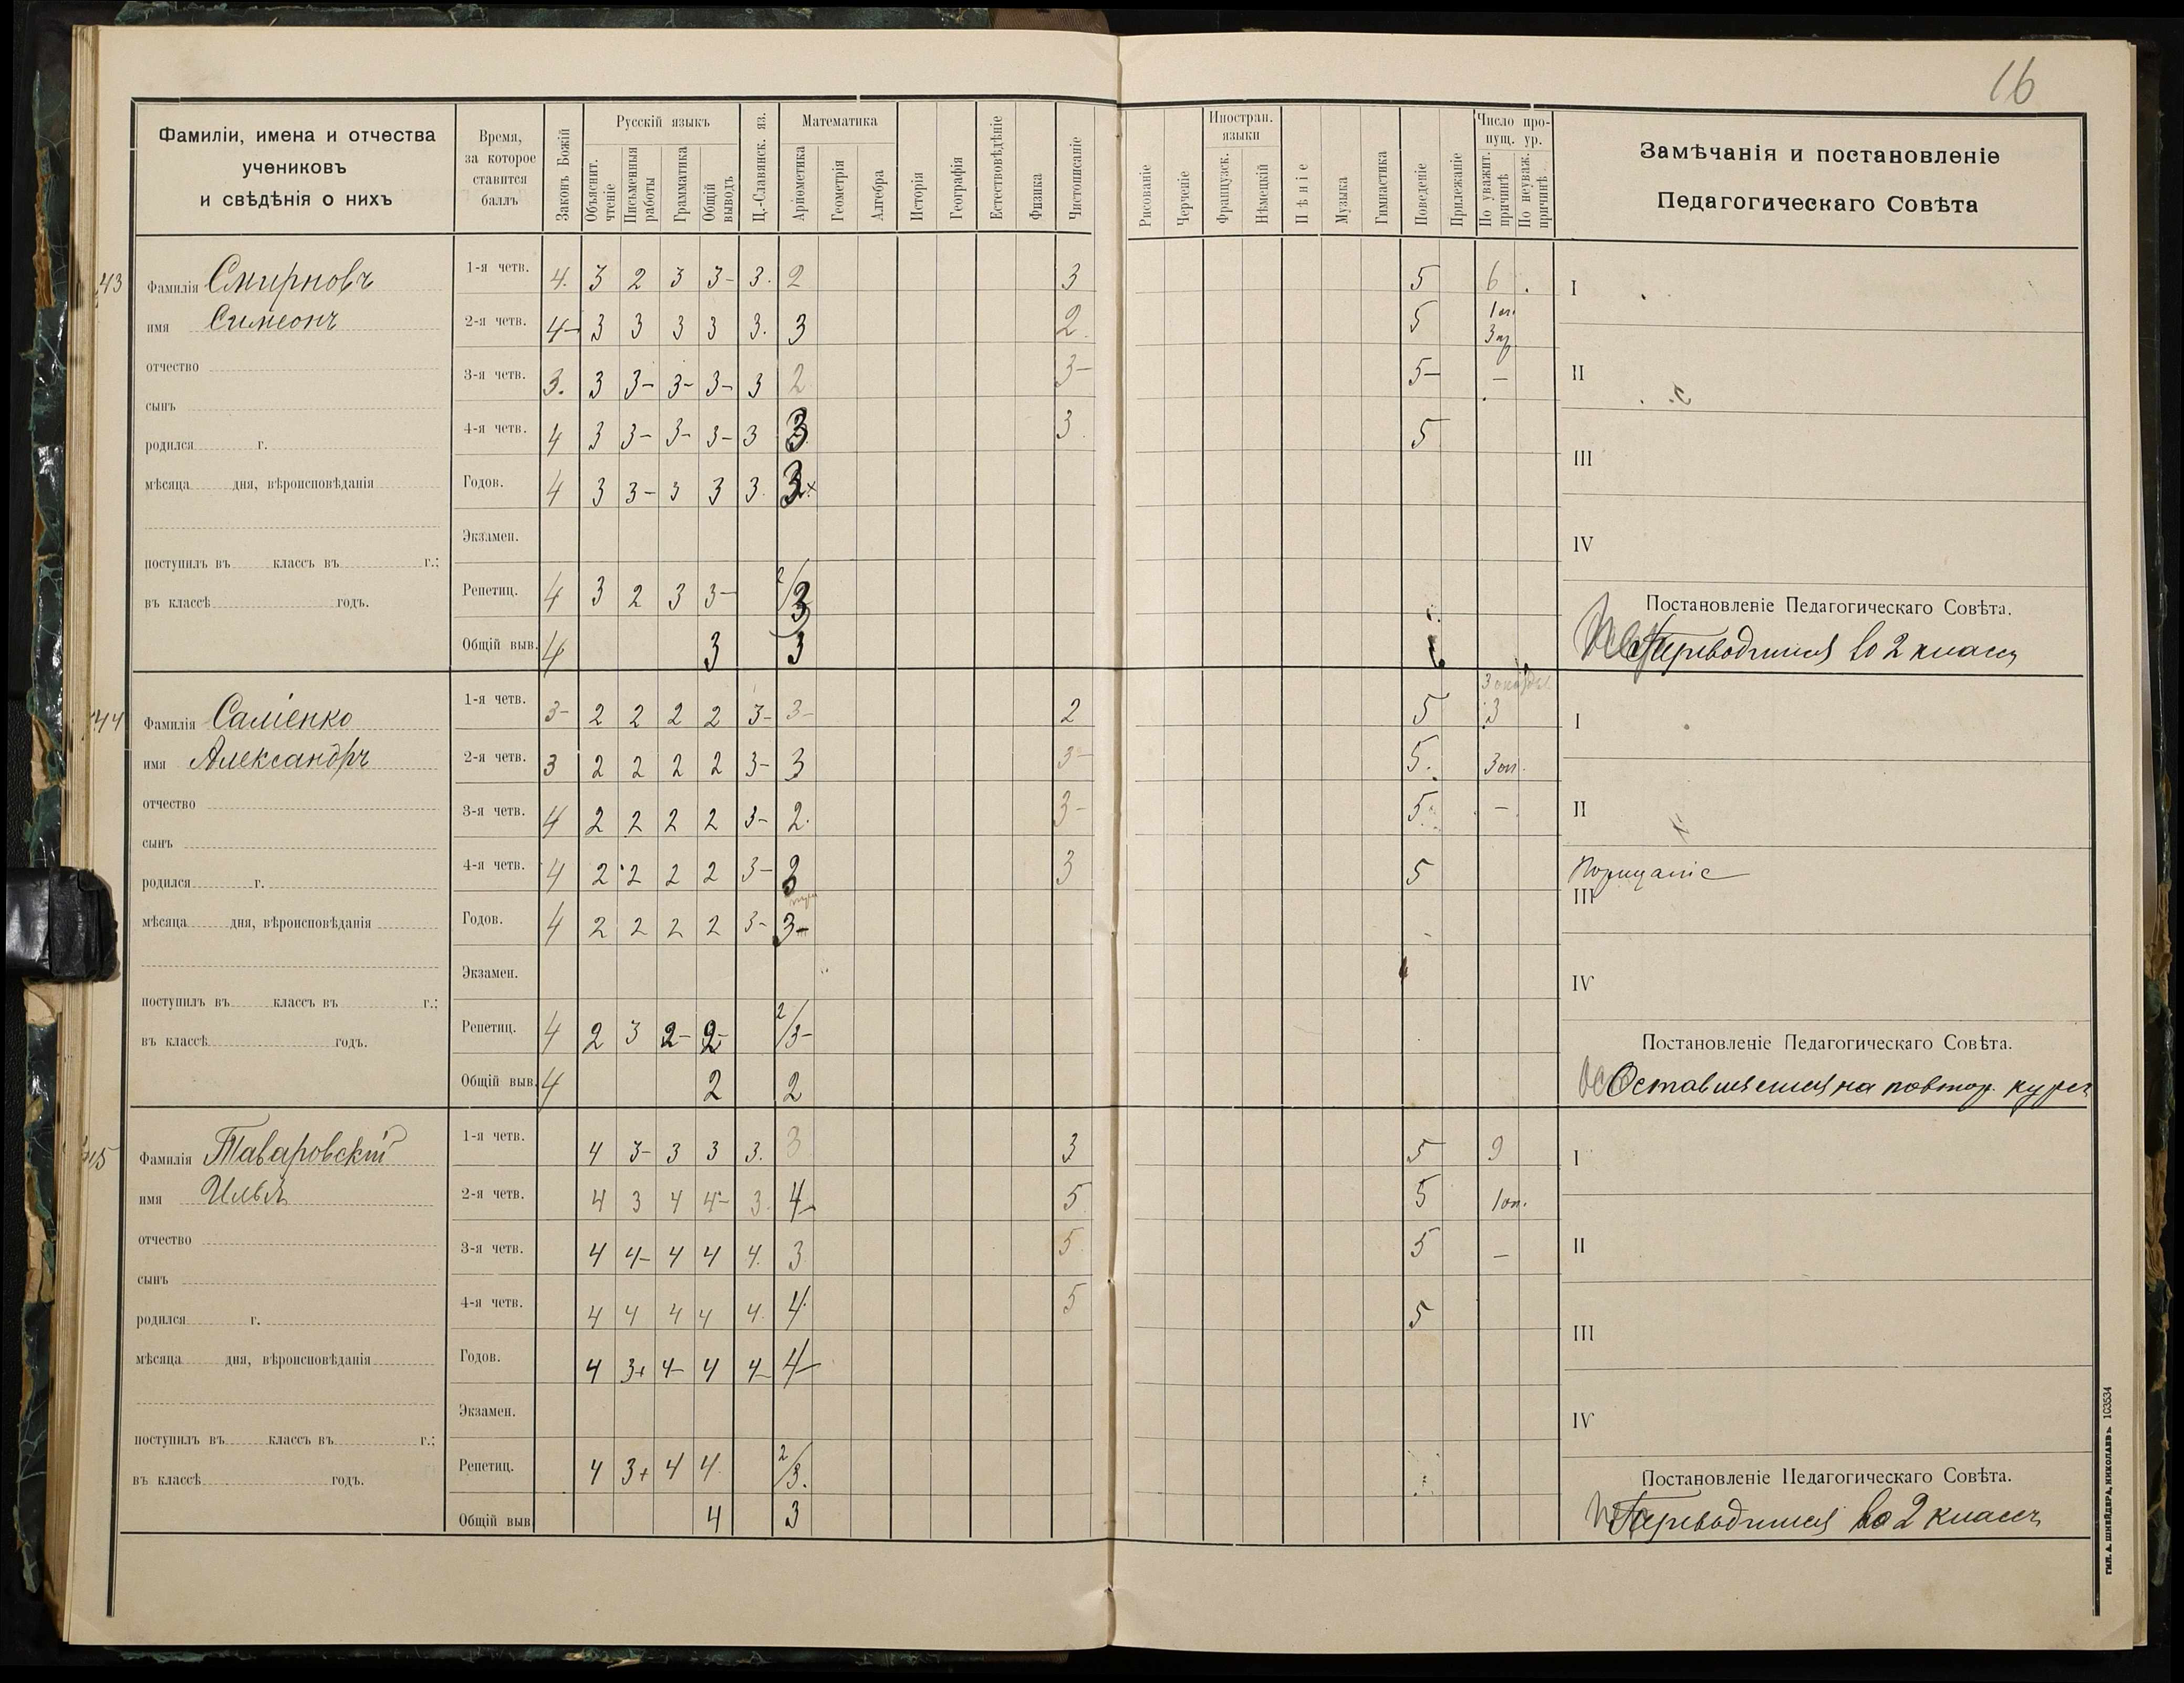 16
Фамиліи, имена и отчества
учениковъ
и свѣдѣнія о нихъ
Время,
за которое
ставится
баллъ
Законъ Божій
Русскій языкъ
Объяснит. чтеніе
Письменныя работы
Грамматика
Общій выводъ
Ц.-Славянск. яз.
Математика
Ариѳметика
Геометрія
Алгебра
Исторія
Географія
Естествовѣдѣніе
Физика
Чистописаніе
Рисованіе
Черченіе
Иностран. языки
Французск.
Нѣмецкій
Пѣніе
Музыка
Гимнастика
Поведеніе
Прилежаніе
Число пропущ. ур.
По уважит. причинѣ
По неуваж. причинѣ
Замѣчанія и постановленіе
Педагогическаго Совѣта
43
Фамилія Смирновъ
имя Симеонъ
отчество
сынъ
родился г.
мѣсяца дня, вѣроисповѣданія
поступилъ въ классъ въ г.;
въ классѣ годъ.
1-я четв. 4. 3 2 3 3- 3. 2 3 5 6
2-я четв. 4- 3 3 3 3 3. 3 2 5 1оп. 3
3-я четв. 3. 3 3- 3- 3- 3 2 3- 5- –
4-я четв. 4 3 3- 3- 3- 3 3 3 5
Годов. 4 3 3- 3 3 3. 3
Экзамен.
Репетиц. 4 3 2 3 3- 2/3
Общій выв. 4 3 3
I
II
III
IV
Постановленіе Педагогическаго Совѣта.
Переводится во 2 классъ
44
Фамилія Саліенко
имя Александръ
отчество
сынъ
родился г.
мѣсяца дня, вѣроисповѣданія
поступилъ въ классъ въ г.;
въ классѣ годъ.
1-я четв. 3- 2 2 2 2 3- 3- 2 5 3
2-я четв. 3 2 2 2 2 3- 3 3- 5. 3оп.
3-я четв. 4 2 2 2 2 3- 2. 3- 5 –
4-я четв. 4 2 2 2 2 3- 3 3 5
Годов. 4 2 2 2 2 3- 3-
Экзамен.
Репетиц. 4 2 3 2- 2- 2/3-
Общій выв. 4 2 2
I
II
Порицаніе
III
IV
Постановленіе Педагогическаго Совѣта.
Оставляется на повтор. курсъ
45
Фамилія Таваровскій
имя Илья
отчество
сынъ
родился г.
мѣсяца дня, вѣроисповѣданія
поступилъ въ классъ въ г.;
въ классѣ годъ.
1-я четв. 4 3- 3 3 3. 3 3 5 9
2-я четв. 4 3 4 4- 3. 4- 5 5 1оп.
3-я четв. 4 4- 4 4 4. 3 5 5 –
4-я четв. 4 4 4 4 4. 4 5 5
Годов. 4 3+ 4- 4 4- 4-
Экзамен.
Репетиц. 4 3+ 4 4 2/3.
Общій выв. 4 3
I
II
III
IV
Постановленіе Педагогическаго Совѣта.
Переводится во 2 классъ
ТИП. А. ШНЕЙДЕРА, НИКОЛАЕВЪ. 103534